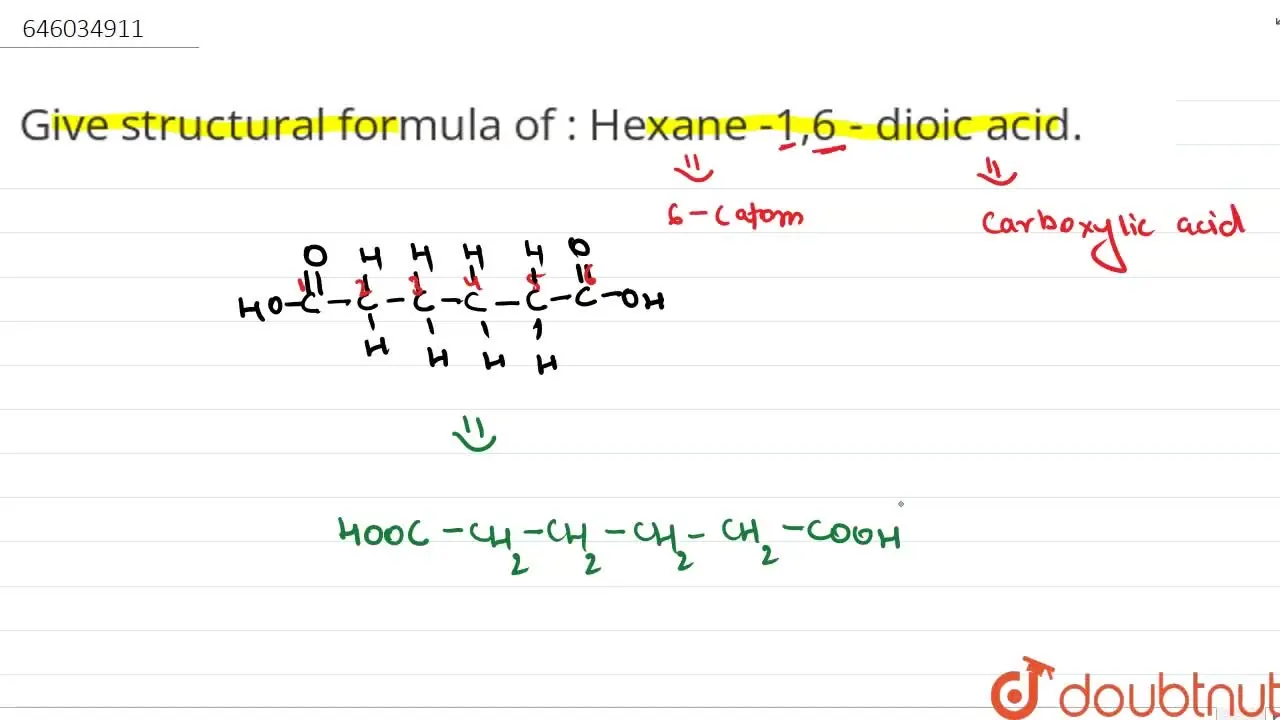 646034911
Give structural formula of : Hexane -1,6 - dioic acid.
6-C atom
Carboxylic acid
O H H H H O
1 2 3 4 5 6
HO-C-C-C-C-C-C-OH
H H H H
HOOC-CH2-CH2-CH2-CH2-COOH
doubtnut